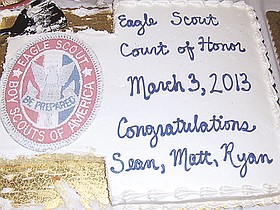 Eagle Scout
Court of Honor
March 3, 2013
Congratulations
Sean, Matt, Ryan
EAGLE SCOUT
BE PREPARED
BOY SCOUTS OF AMERICA